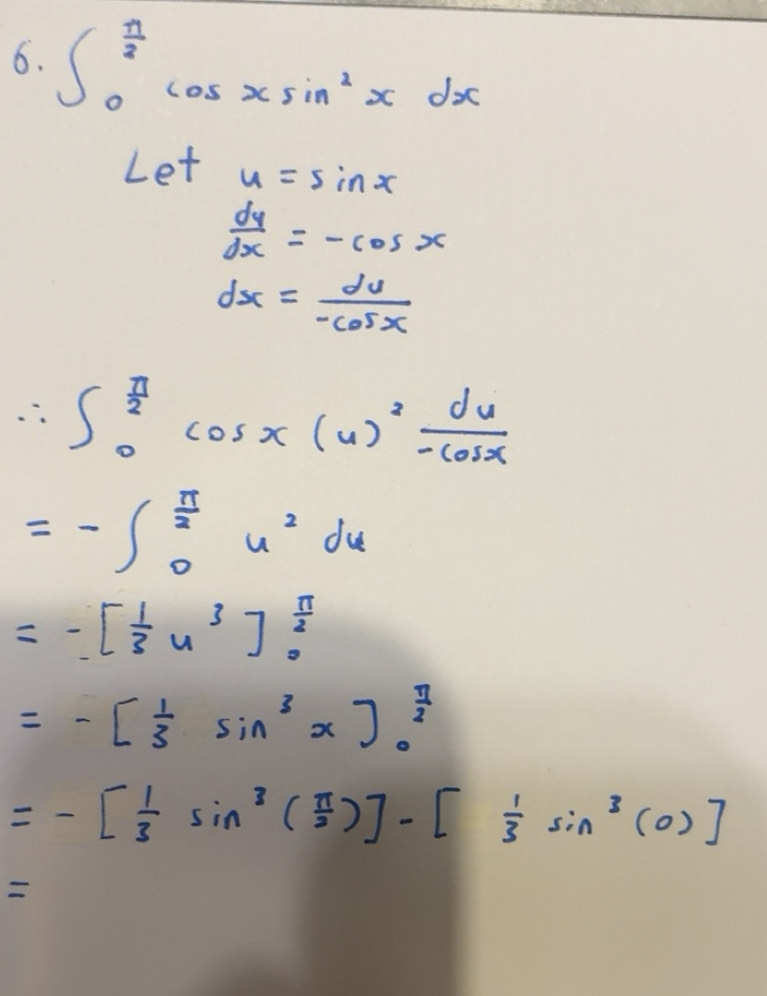 6. ∫₀^(π/2) cos x sin² x dx
Let u = sin x
du/dx = -cos x
dx = du/(-cos x)
∴ ∫₀^(π/2) cos x (u)² du/(-cos x)
= - ∫₀^(π/2) u² du
= - [1/3 u³]₀^(π/2)
= - [1/3 sin³ x]₀^(π/2)
= - [1/3 sin³ (π/2)] - [ 1/3 sin³ (0)]
=